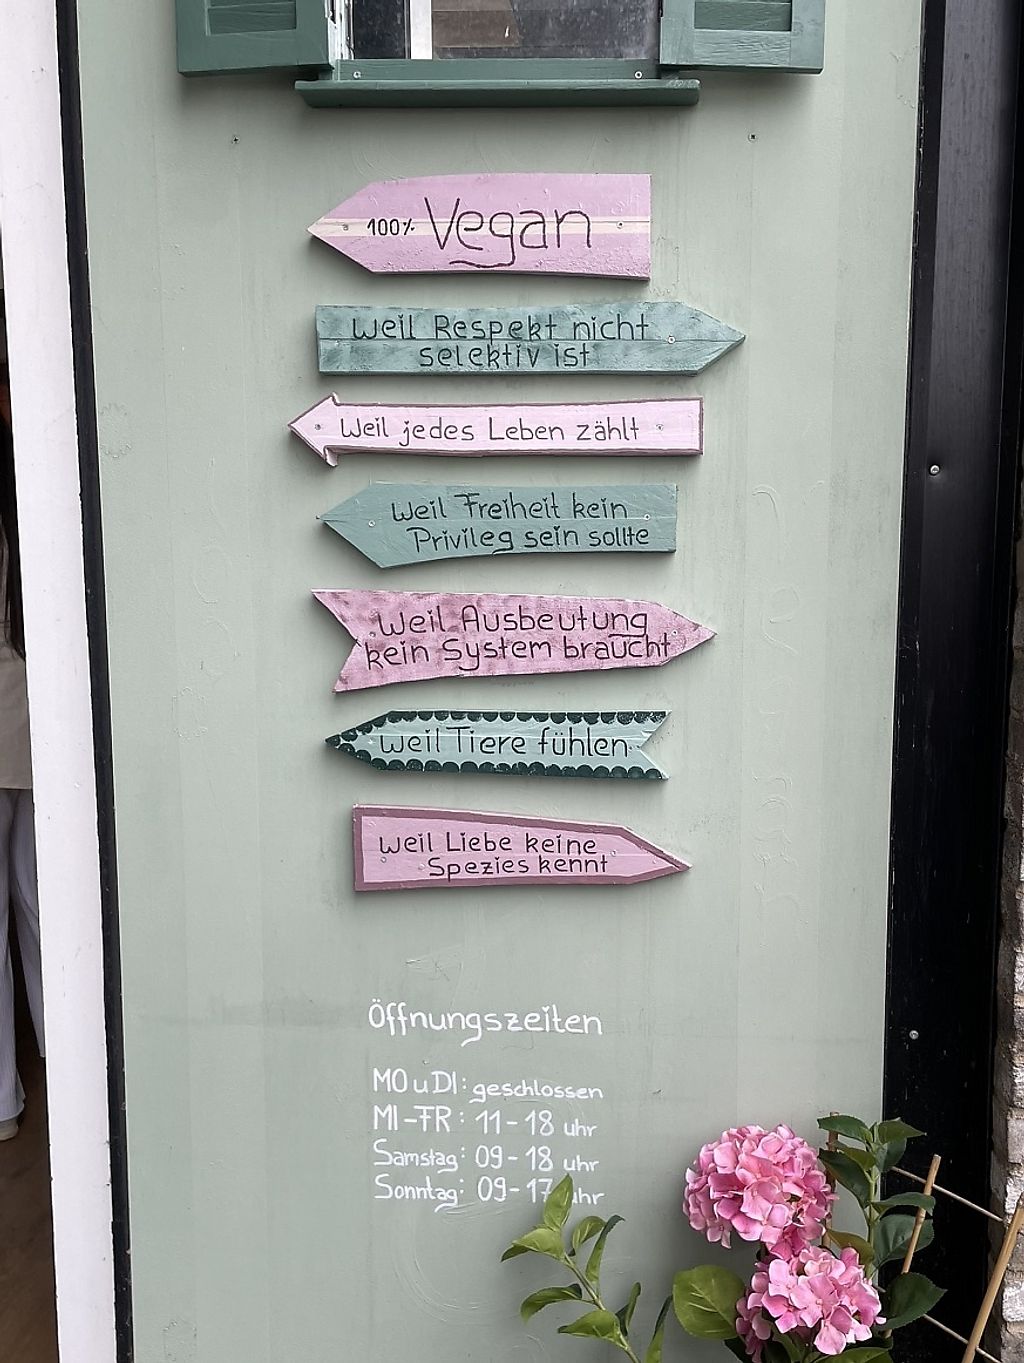 100% Vegan
Weil Respekt nicht
selektiv ist
Weil jedes Leben zählt
Weil Freiheit kein
Privileg sein sollte
Weil Ausbeutung
kein System braucht
Weil Tiere fühlen
Weil Liebe keine
Spezies kennt
Öffnungszeiten
MO u DI: geschlossen
MI-FR: 11-18 uhr
Samstag: 09-18 uhr
Sonntag: 09-17 uhr